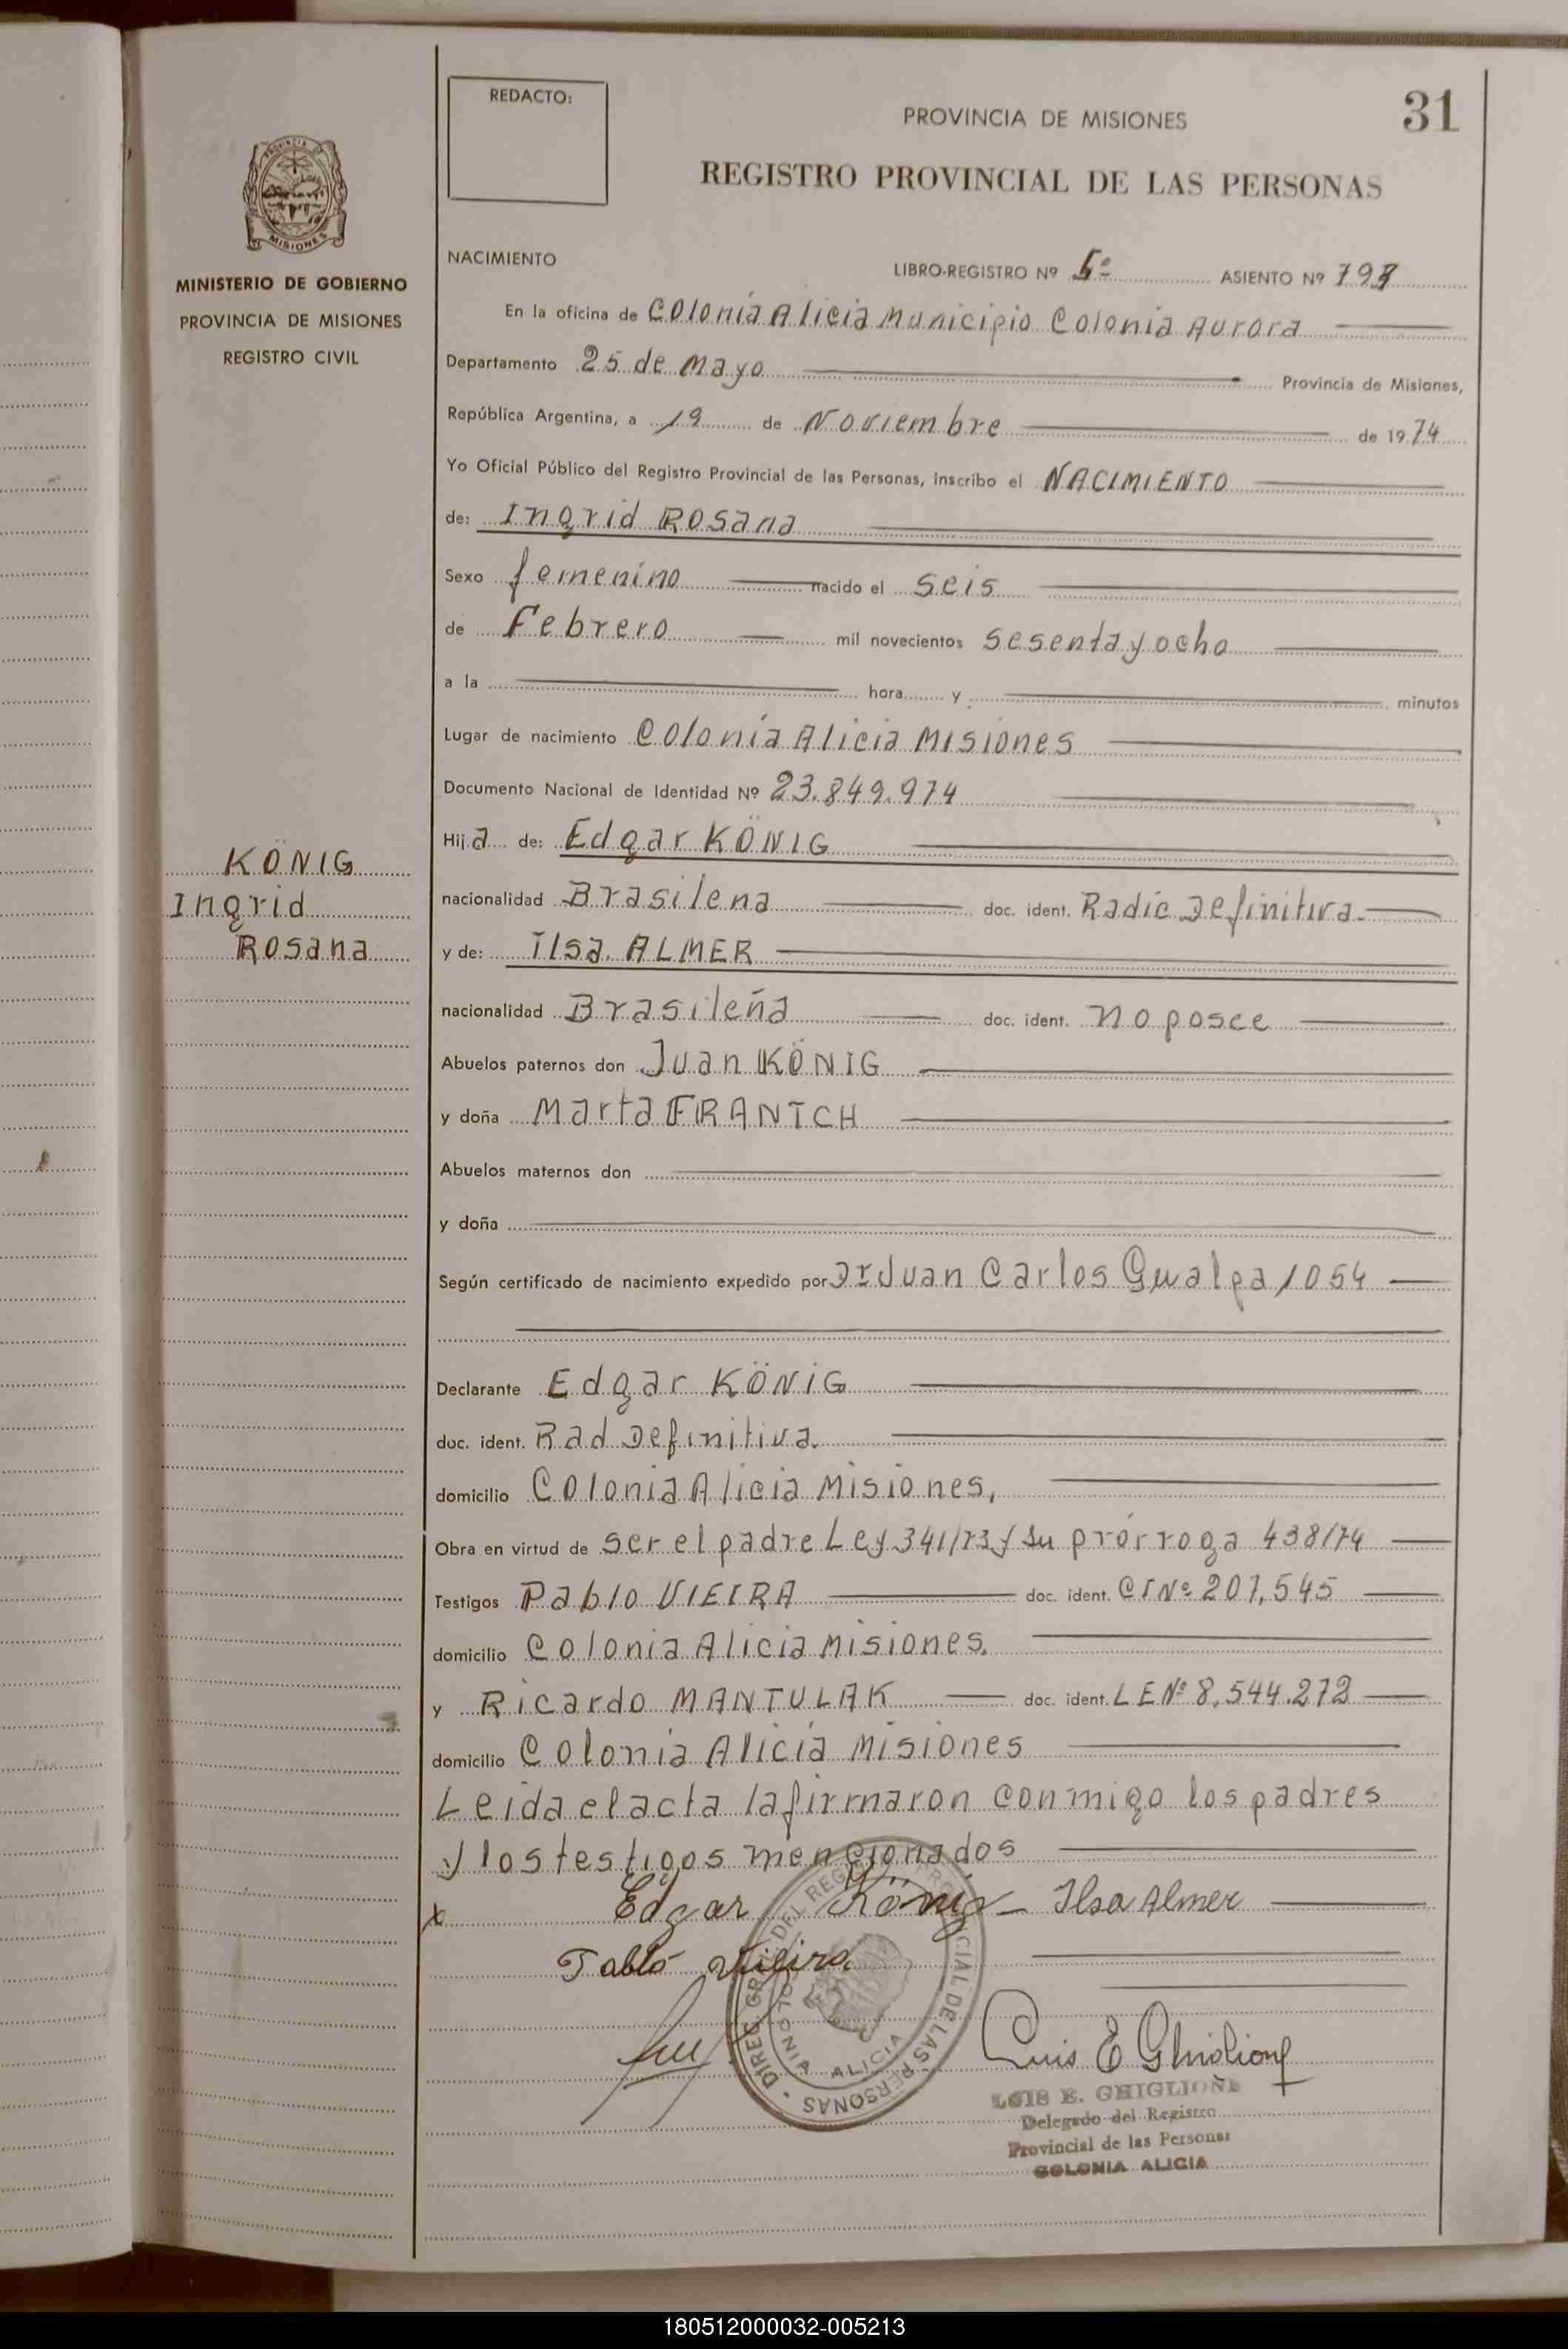 REDACTO:
PROVINCIA DE MISIONES
31
REGISTRO PROVINCIAL DE LAS PERSONAS
MISIONES
MINISTERIO DE GOBIERNO
PROVINCIA DE MISIONES
REGISTRO CIVIL
NACIMIENTO
LIBRO-REGISTRO Nº 5º ASIENTO Nº
En la oficina de Colonia Alicia Municipio Colonia Aurora
Departamento 25 de Mayo Provincia de Misiones,
República Argentina, a 19 de Noviembre de 1974
Yo Oficial Público del Registro Provincial de las Personas, inscribo el NACIMIENTO
de: Ingrid Rosana
Sexo femenino nacido el seis
de Febrero mil novecientos sesenta y ocho
a la hora y minutos
Lugar de nacimiento Colonia Alicia Misiones
Documento Nacional de Identidad Nº 23.849.974
Hija de: Edgar KÖNIG
nacionalidad Brasilena doc. ident. Radic Definitiva.
y de: Ilsa. ALMER
nacionalidad Brasileña doc. ident. no posee
Abuelos paternos don Juan KÖNIG
y doña Marta FRANTCH
Abuelos maternos don
y doña
Según certificado de nacimiento expedido por Dr Juan Carlos Gualpa 1054
KÖNIG
Ingrid
Rosana
Declarante Edgar KÖNIG
doc. ident. Rad Definitiva.
domicilio Colonia Alicia Misiones,
Obra en virtud de ser el padre Ley 341/73 y su prórroga 438/74
Testigos Pablo VIEIRA doc. ident. CI Nº 207,545
domicilio Colonia Alicia Misiones.
y Ricardo MANTULAK doc. ident. LE Nº 8.544.272
domicilio Colonia Alicia Misiones
Leida el acta la firmaron conmigo los padres
y los testigos mencionados
x Edgar König - Ilsa Almer
Pablo Vieira
DIREC. GRAL. DEL REGISTRO PROVINCIAL DE LAS PERSONAS
COLONIA ALICIA
Luis E Ghiglione
LUIS E. GHIGLIONE
Delegado del Registro
Provincial de las Personas
COLONIA ALICIA
180512000032-005213